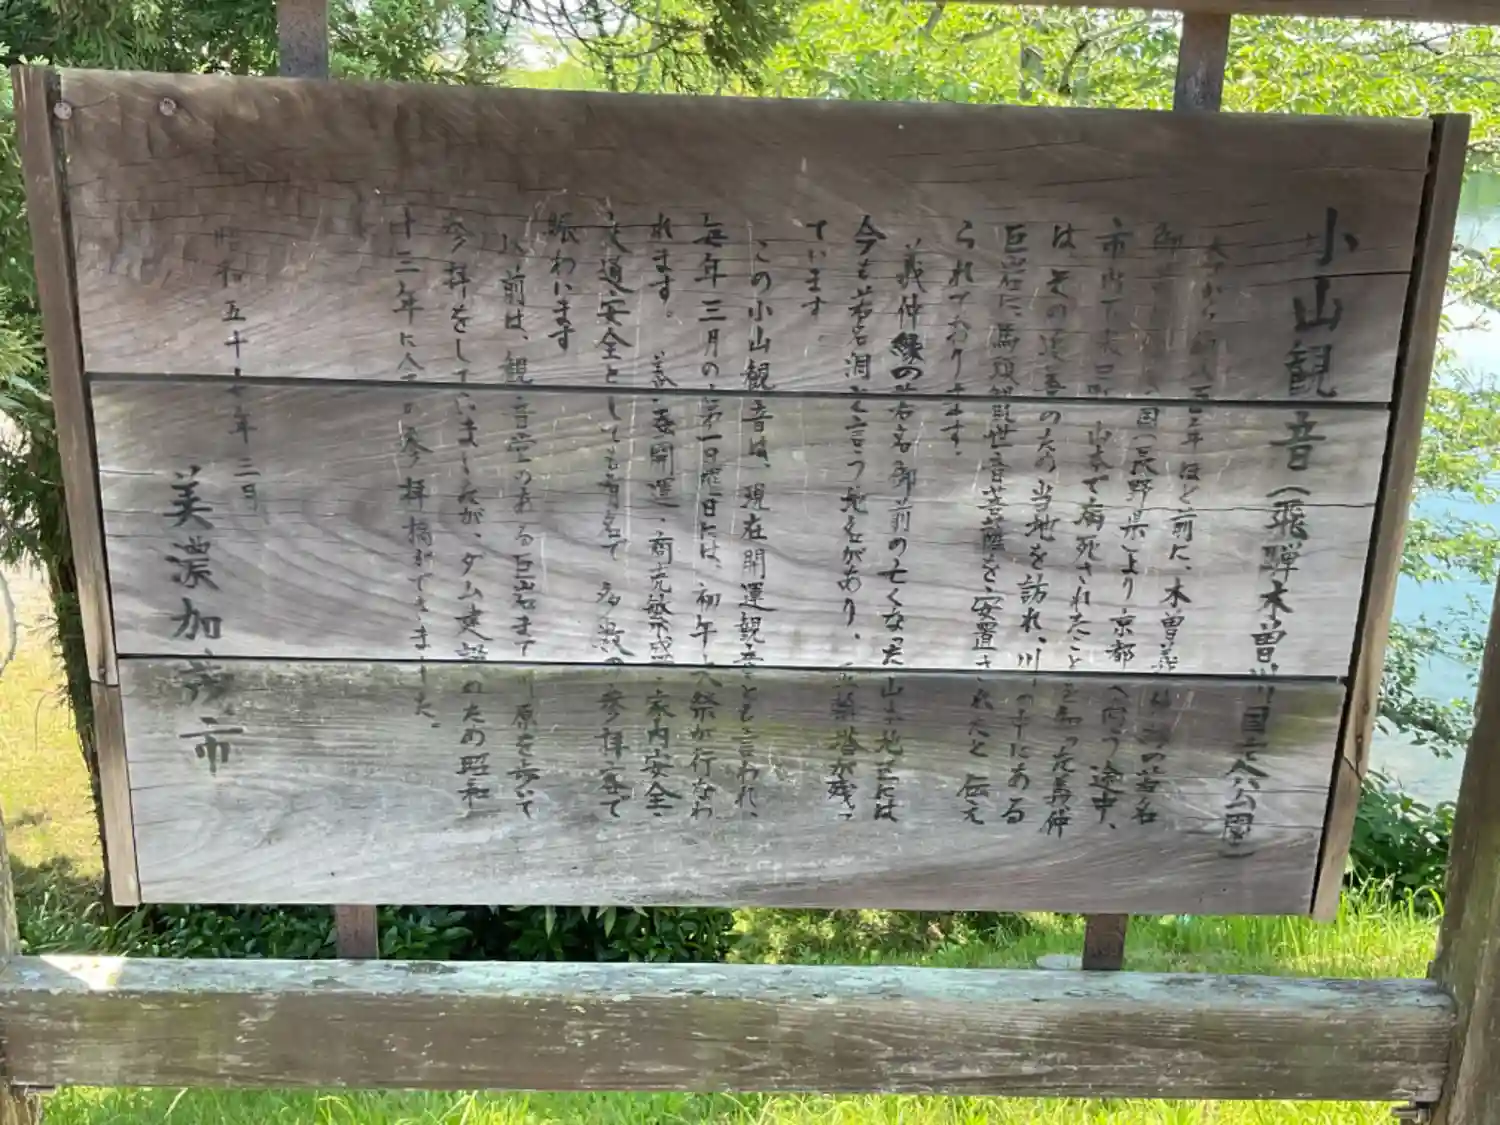 小山観音(飛騨木曽川国定公園)
今から約八百年ほど前に、木曽義仲の若名
御前 国(長野県)より京都へ向う途中、
市山下 で病死されたこと
は、その追善のため当地を訪れ、川の中にある
巨岩に馬頭観世音菩薩を安置されたと伝え
られております。
義仲縁の若名御前の亡くなった山本地区には
今も若名洞と言う地名があり、 塔が残っ
ています
この小山観音は、現在開運観音とも言われ、
毎年三月の第一日曜日には、初午大祭が行なわ
れます。 開運、商売繁盛、家内安全、
交通安全としても有名で 多数の参拝客で
賑わいます
以前は、観音堂のある巨岩まで川原を歩いて
参拝をしていましたが、ダム建設のため昭和
十三年に 参拝橋ができました。
昭和五十 年三月
美濃加茂市